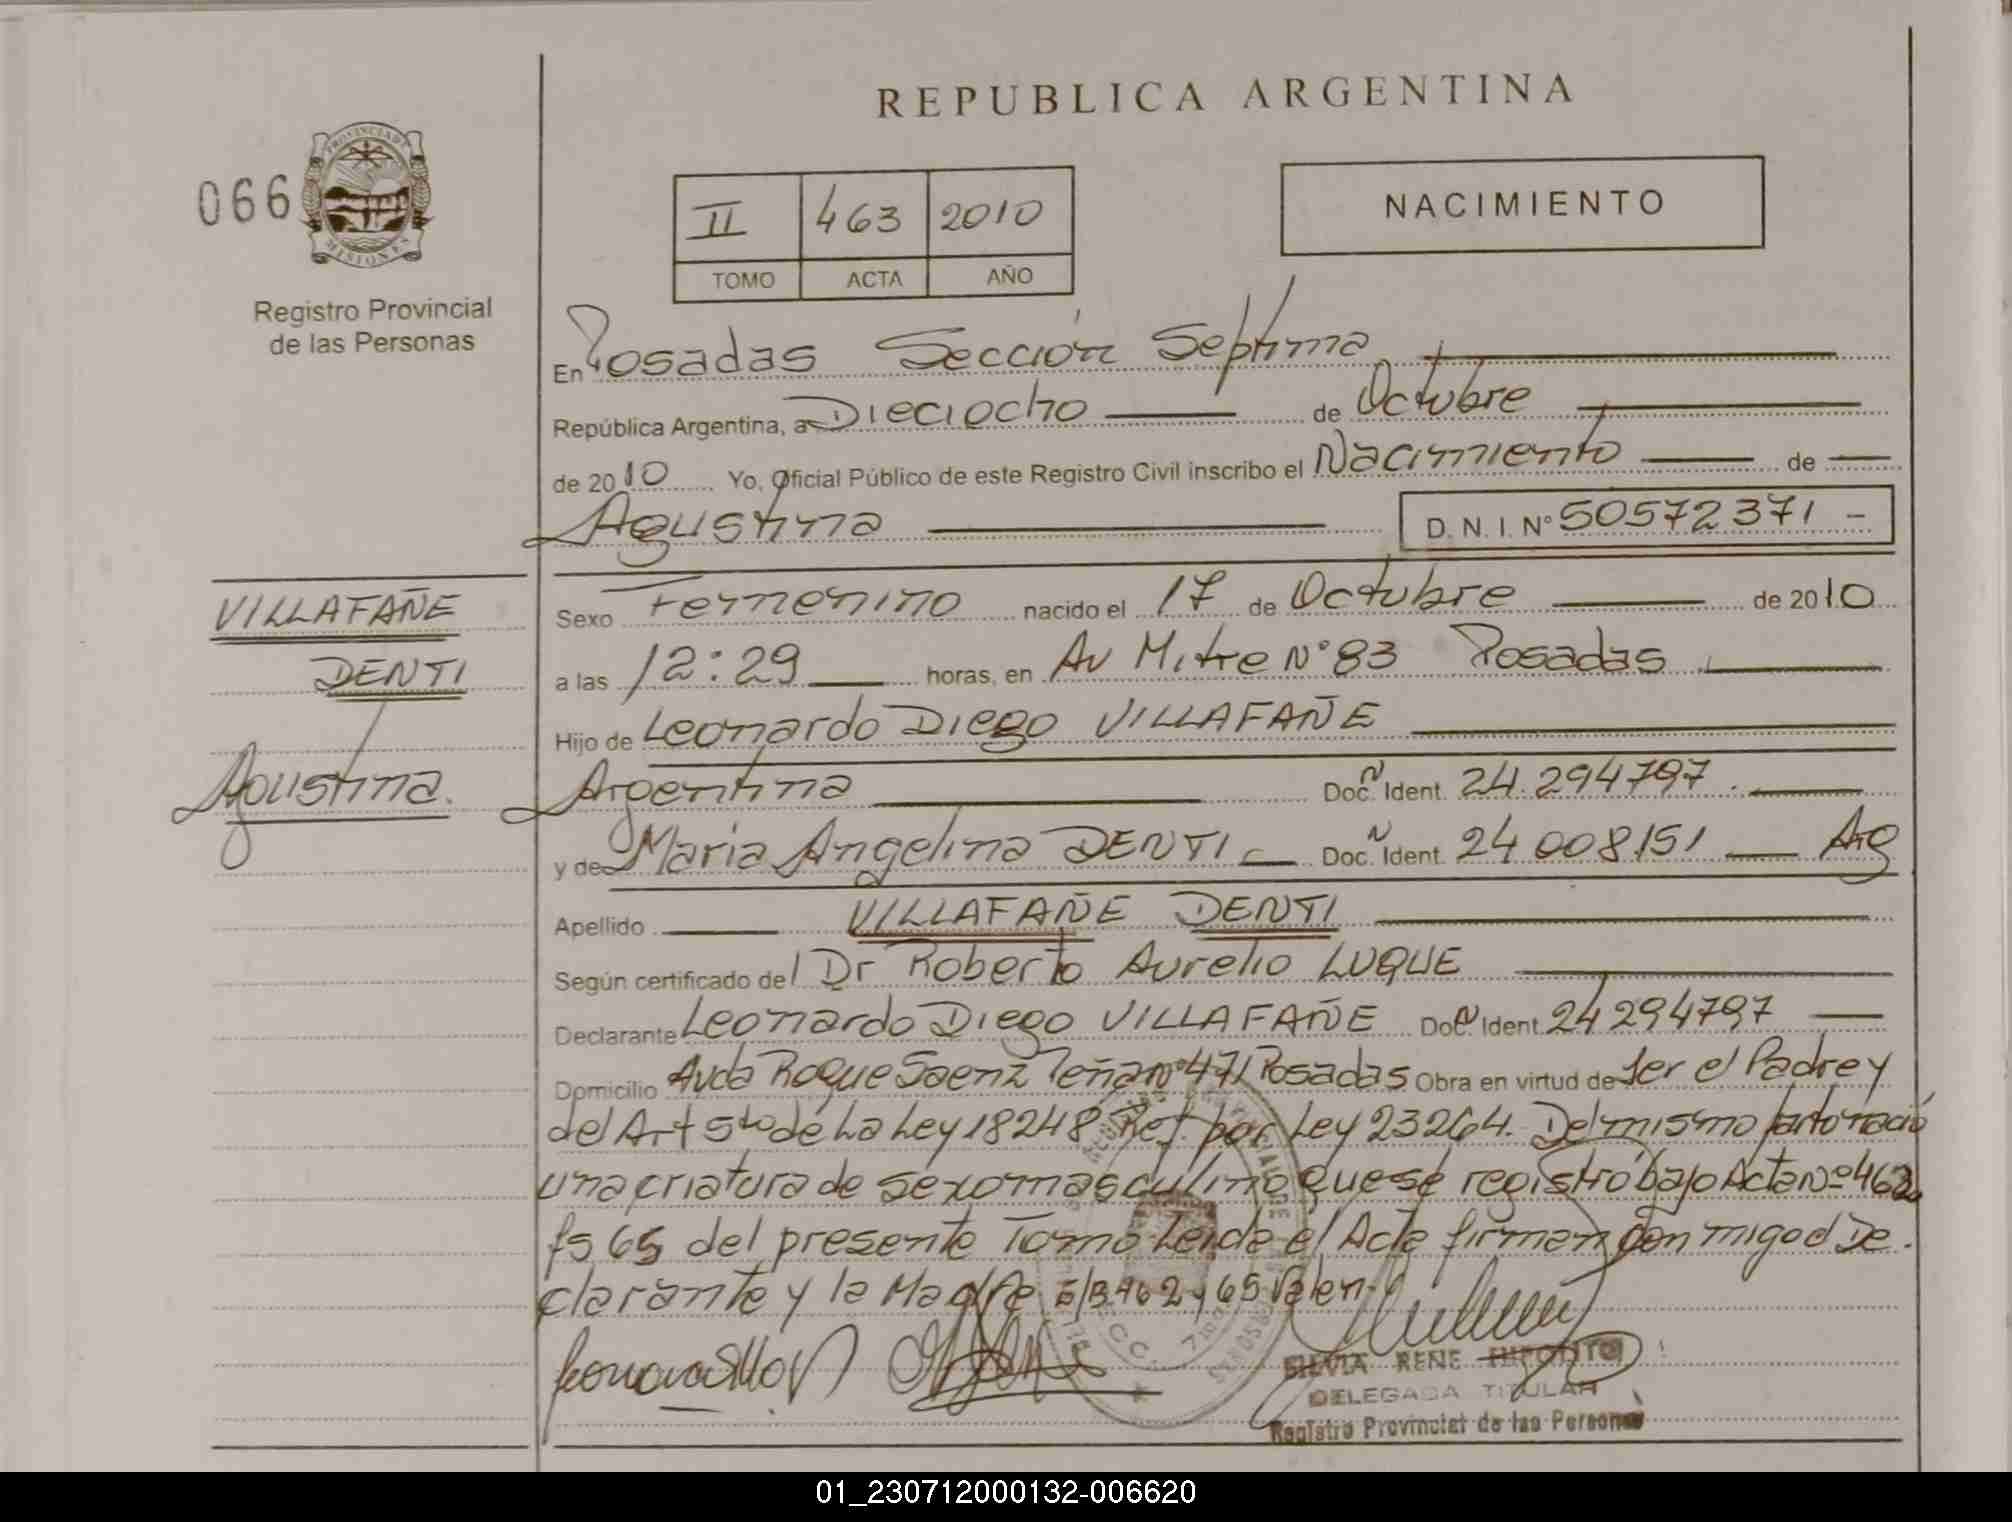 REPUBLICA ARGENTINA
066
PROVINCIA DE
MISIONES
Registro Provincial
de las Personas
II 463 2010
TOMO ACTA AÑO
NACIMIENTO
En Posadas Sección Septima
República Argentina, a Dieciocho de Octubre
de 2010 Yo, Oficial Público de este Registro Civil inscribo el Nacimiento de
Agustina D. N. I. N° 50572371 -
VILLAFAÑE
DENTI
Agustina.
Sexo Femenino nacido el 17 de Octubre de 2010
a las 12:29 horas, en Av Mitre N° 83 Posadas
Hijo de Leonardo Diego VILLAFAÑE
Argentina Doc. Ident. 24.294797.
y de Maria Angelina DENTI Doc. Ident. 24 008151 Arg
Apellido VILLAFAÑE DENTI
Según certificado del Dr Roberto Aurelio LUQUE
Declarante Leonardo Diego VILLAFAÑE Doc. Ident. 24294797
Domicilio Avda Roque Saenz Peña N° 471 Posadas Obra en virtud de ser el Padre y
del Art 5to de La Ley 18248 Ref. por Ley 23264. Del mismo parto nació
una criatura de sexo masculino que se registró bajo Acta Nº 462
fs 65 del presente Tomo Leida el Acta firman con migo el De
clarante y la Madre E/B 462 y 65 Valen
SILVIA RENE HIPOLITO
DELEGADA TITULAR
Registro Provincial de las Personas
01_230712000132-006620